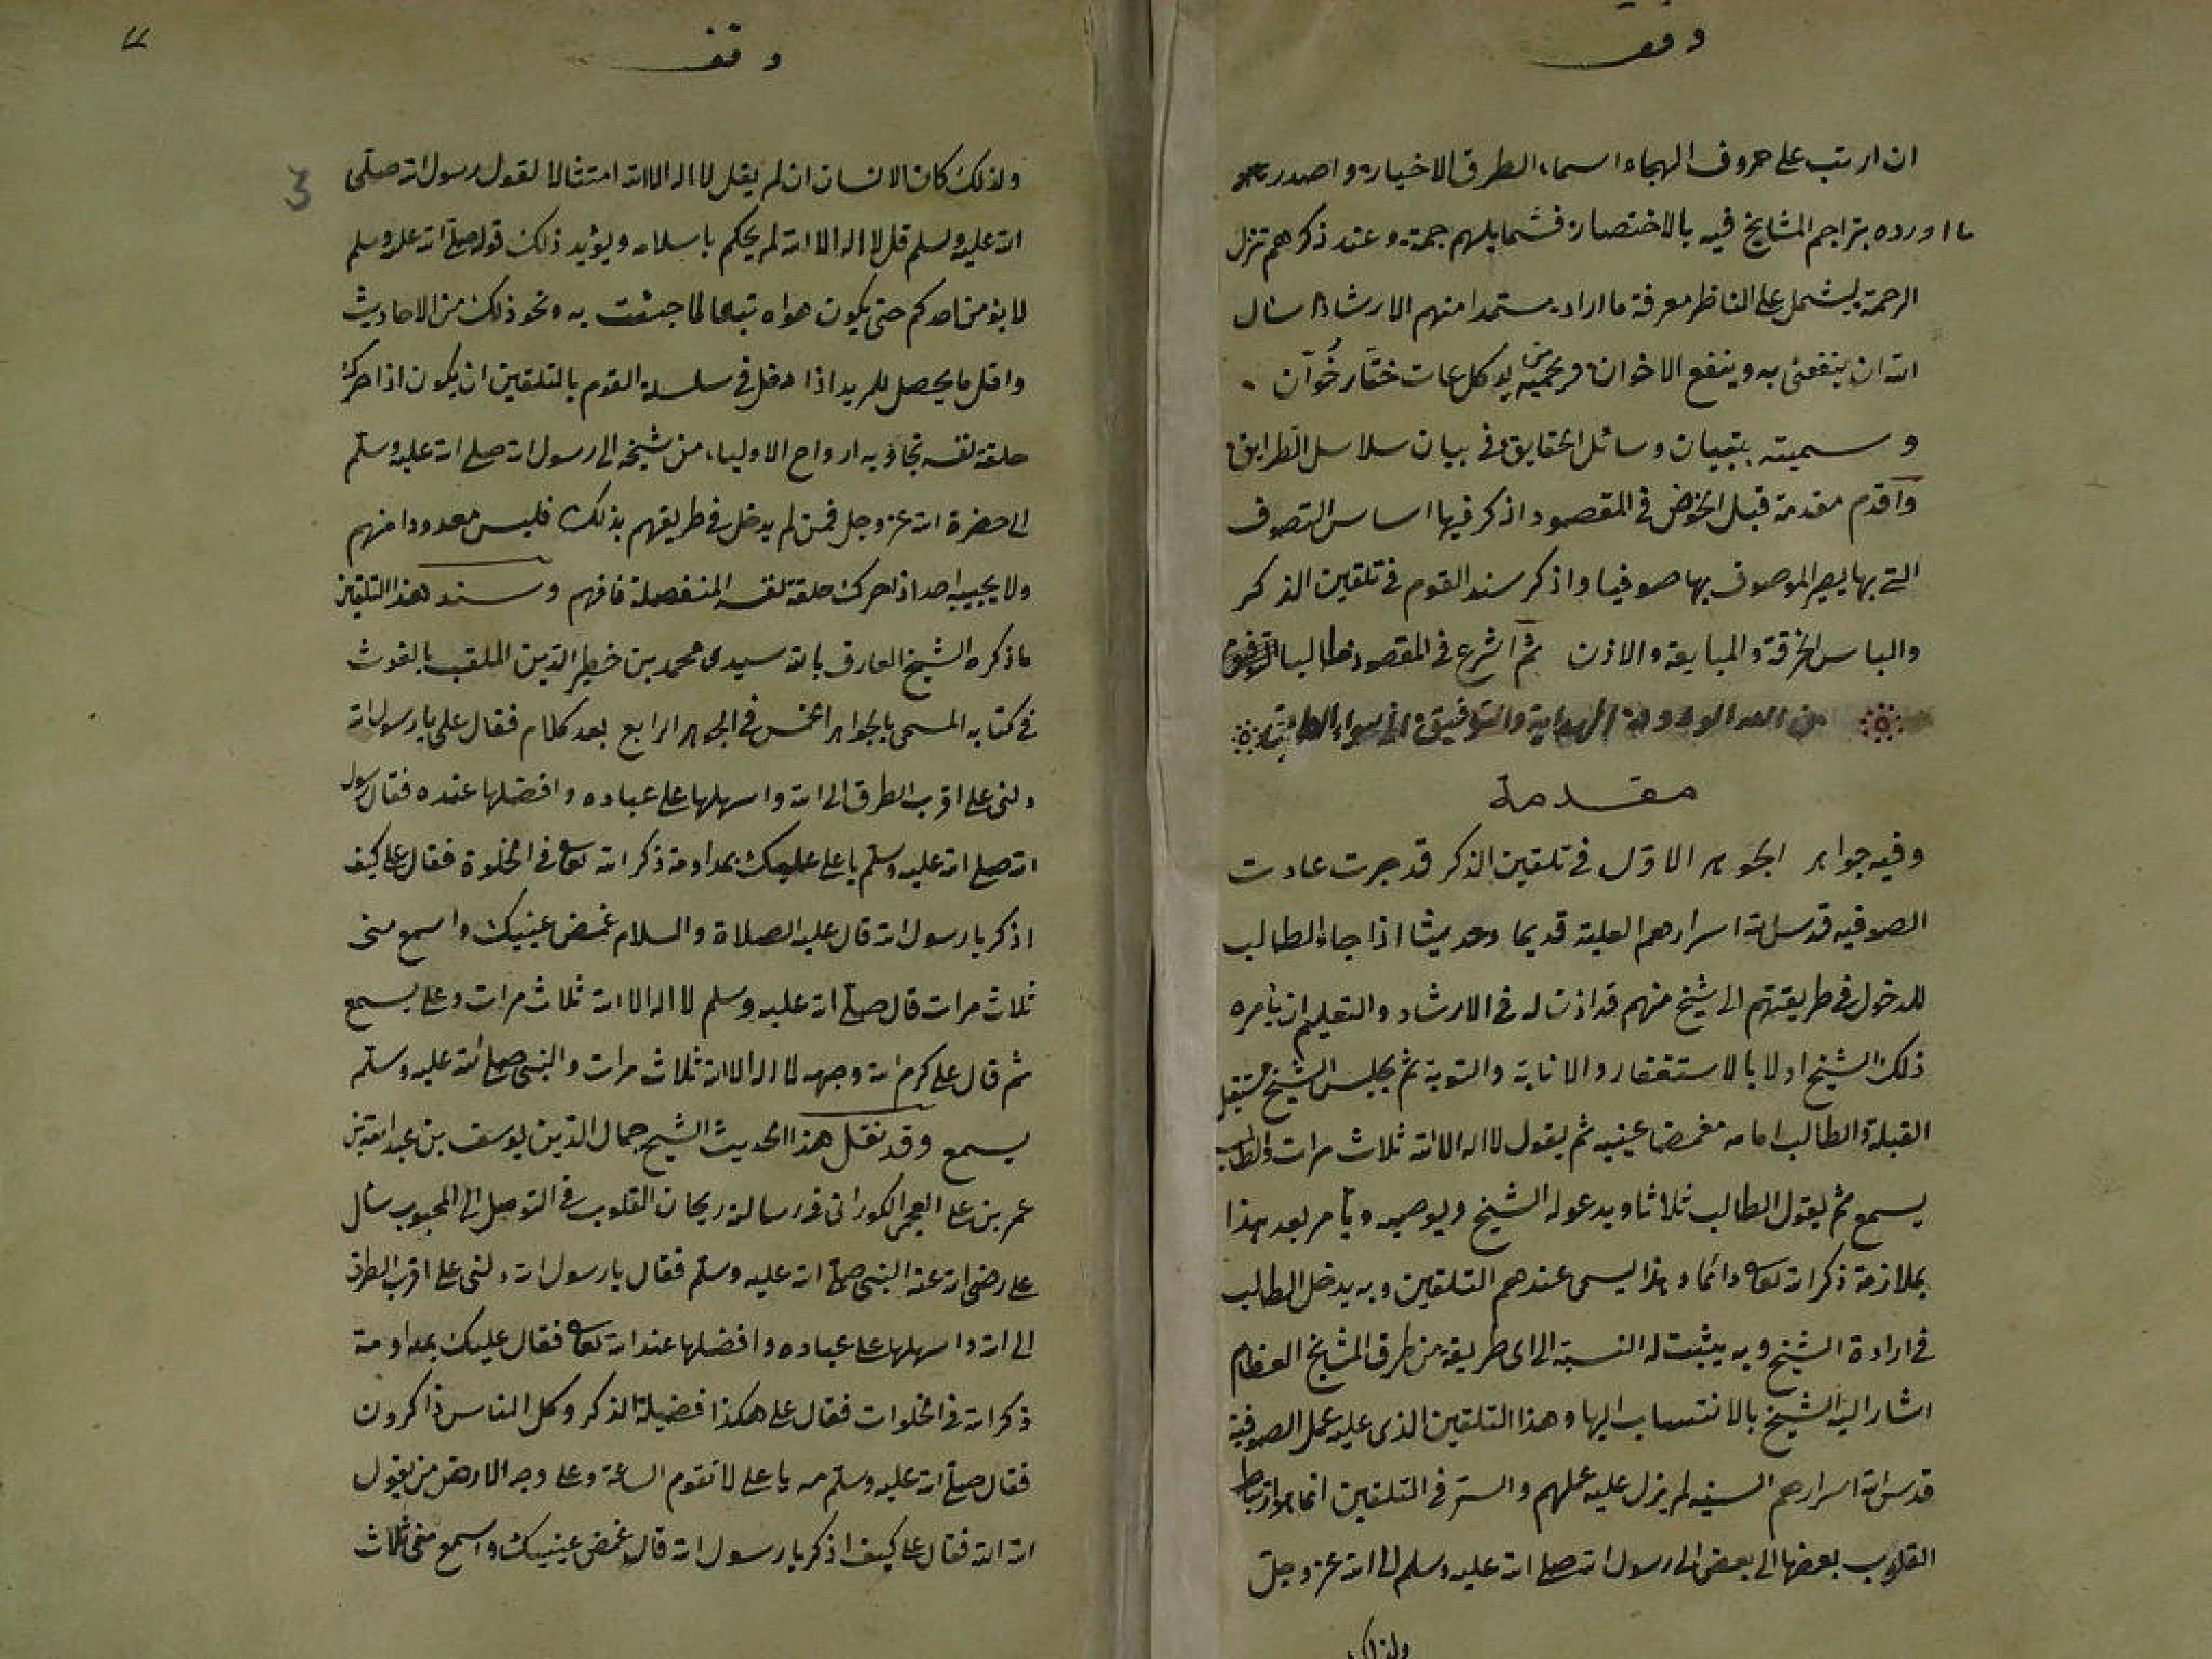 وقف
ان ارتب على حروف الهجاء اسماء الطرق الاخيار واصدر
ما اورده بتراجم المشايخ فيه بالاختصار فشمايلهم جمة وعند ذكرهم تنزل
الرحمة ليشمل على الناظر معرفة ما اراد مستمدا منهم الارشاد اسال
الله ان ينفعنى به وينفع الاخوان ويحميه من يد كل عات ختار خوان
وسميته بتبيان وسائل الحقايق فى بيان سلاسل الطرايق
واقدم مقدمة قبل الخوض فى المقصود اذكر فيها اساس التصوف
التى بها يصير الموصوف بها صوفيا واذكر سند القوم فى تلقين الذكر
والباس الخرقة والمبايعة والاذن ثم اشرع فى المقصود طالبا
من الله الودود الهداية والتوفيق الى سواء الطريق
مقدمة
وفيه جواهر الجوهر الاول فى تلقين الذكر قد جرت عادت
الصوفيه قدس الله اسرارهم العلية قديما وحديثا اذا جاء الطالب
للدخول فى طريقتهم الى شيخ منهم قد اذن له فى الارشاد والتعليم ان يأمره
ذلك الشيخ اولا بالاستغفار والانابة والتوبة ثم يجلس الشيخ مستقبل
القبلة والطالب امامه مغمضا عينيه ثم يقول لا اله الا الله ثلاث مرات والطالب
يسمع ثم يقول الطالب ثلاثا ويدعو له الشيخ ويوصيه ويأمر بعد هذا
بملازمة ذكر الله تعالى دائما وهذا يسمى عندهم التلقين وبه يدخل الطالب
فى ارادة الشيخ وبه يثبت له النسبة الى اى طريقة من طرق المشايخ العظام
اشار اليه الشيخ بالانتساب اليها وهذا التلقين الذى عليه عمل الصوفية
قدس الله اسرارهم السنيه لم يزل عليه عملهم والسر فى التلقين انما هو ارتباط
القلوب بعضها الى بعض الى رسول الله صلى الله عليه وسلم الى الله عز وجل
ولذلك
وقف
3
ولذلك كان الانسان ان لم يقل لا اله الا الله امتثالا لقول رسول الله صلى
الله عليه وسلم قل لا اله الا الله لم يحكم باسلامه ويؤيد ذلك قوله صلى الله عليه وسلم
لا يؤمن احدكم حتى يكون هواه تبعا لما جئت به ونحو ذلك من الاحاديث
واقل ما يحصل للمريد اذا دخل فى سلسلة القوم بالتلقين ان يكون اذا حرك
حلقة نفسه تجاوبه ارواح الاولياء من شيخه الى رسول الله صلى الله عليه وسلم
الى حضرة الله عز وجل فمن لم يدخل فى طريقهم بذلك فليس معدودا منهم
ولا يجيبه احد اذا حرك حلقة نفسه المنفصلة فافهم وسند هذا التلقين
ما ذكره الشيخ العارف بالله سيدى محمد بن خطير الدين الملقب بالغوث
فى كتابه المسمى بالجواهر الخمس فى الجوهر الرابع بعد كلام فقال على يا رسول الله
دلنى على اقرب الطرق الى الله واسهلها على عباده وافضلها عنده فقال رسول
الله صلى الله عليه وسلم يا على عليك بمداومة ذكر الله تعالى فى الخلوة فقال على كيف
اذكر يا رسول الله قال عليه الصلاة والسلام غمض عينيك واسمع منى
ثلاث مرات قال صلى الله عليه وسلم لا اله الا الله ثلاث مرات وعلى يسمع
ثم قال على كرم الله وجهه لا اله الا الله ثلاث مرات والنبى صلى الله عليه وسلم
يسمع وقد نقل هذا الحديث الشيخ جمال الدين يوسف بن عبد الله بن
عمر بن على العجمى الكورانى فى رسالة ريحان القلوب فى التوصل الى المحبوب سال
على رضى الله عنه النبى صلى الله عليه وسلم فقال يا رسول الله دلنى على اقرب الطرق
الى الله واسهلها على عباده وافضلها عند الله تعالى فقال عليك بمداومة
ذكر الله فى الخلوات فقال على هكذا فضيلة الذكر وكل الناس ذاكرون
فقال صلى الله عليه وسلم مه يا على لا تقوم الساعة وعلى وجه الارض من يقول
الله الله فقال على كيف اذكر يا رسول الله قال غمض عينيك واسمع منى ثلاث